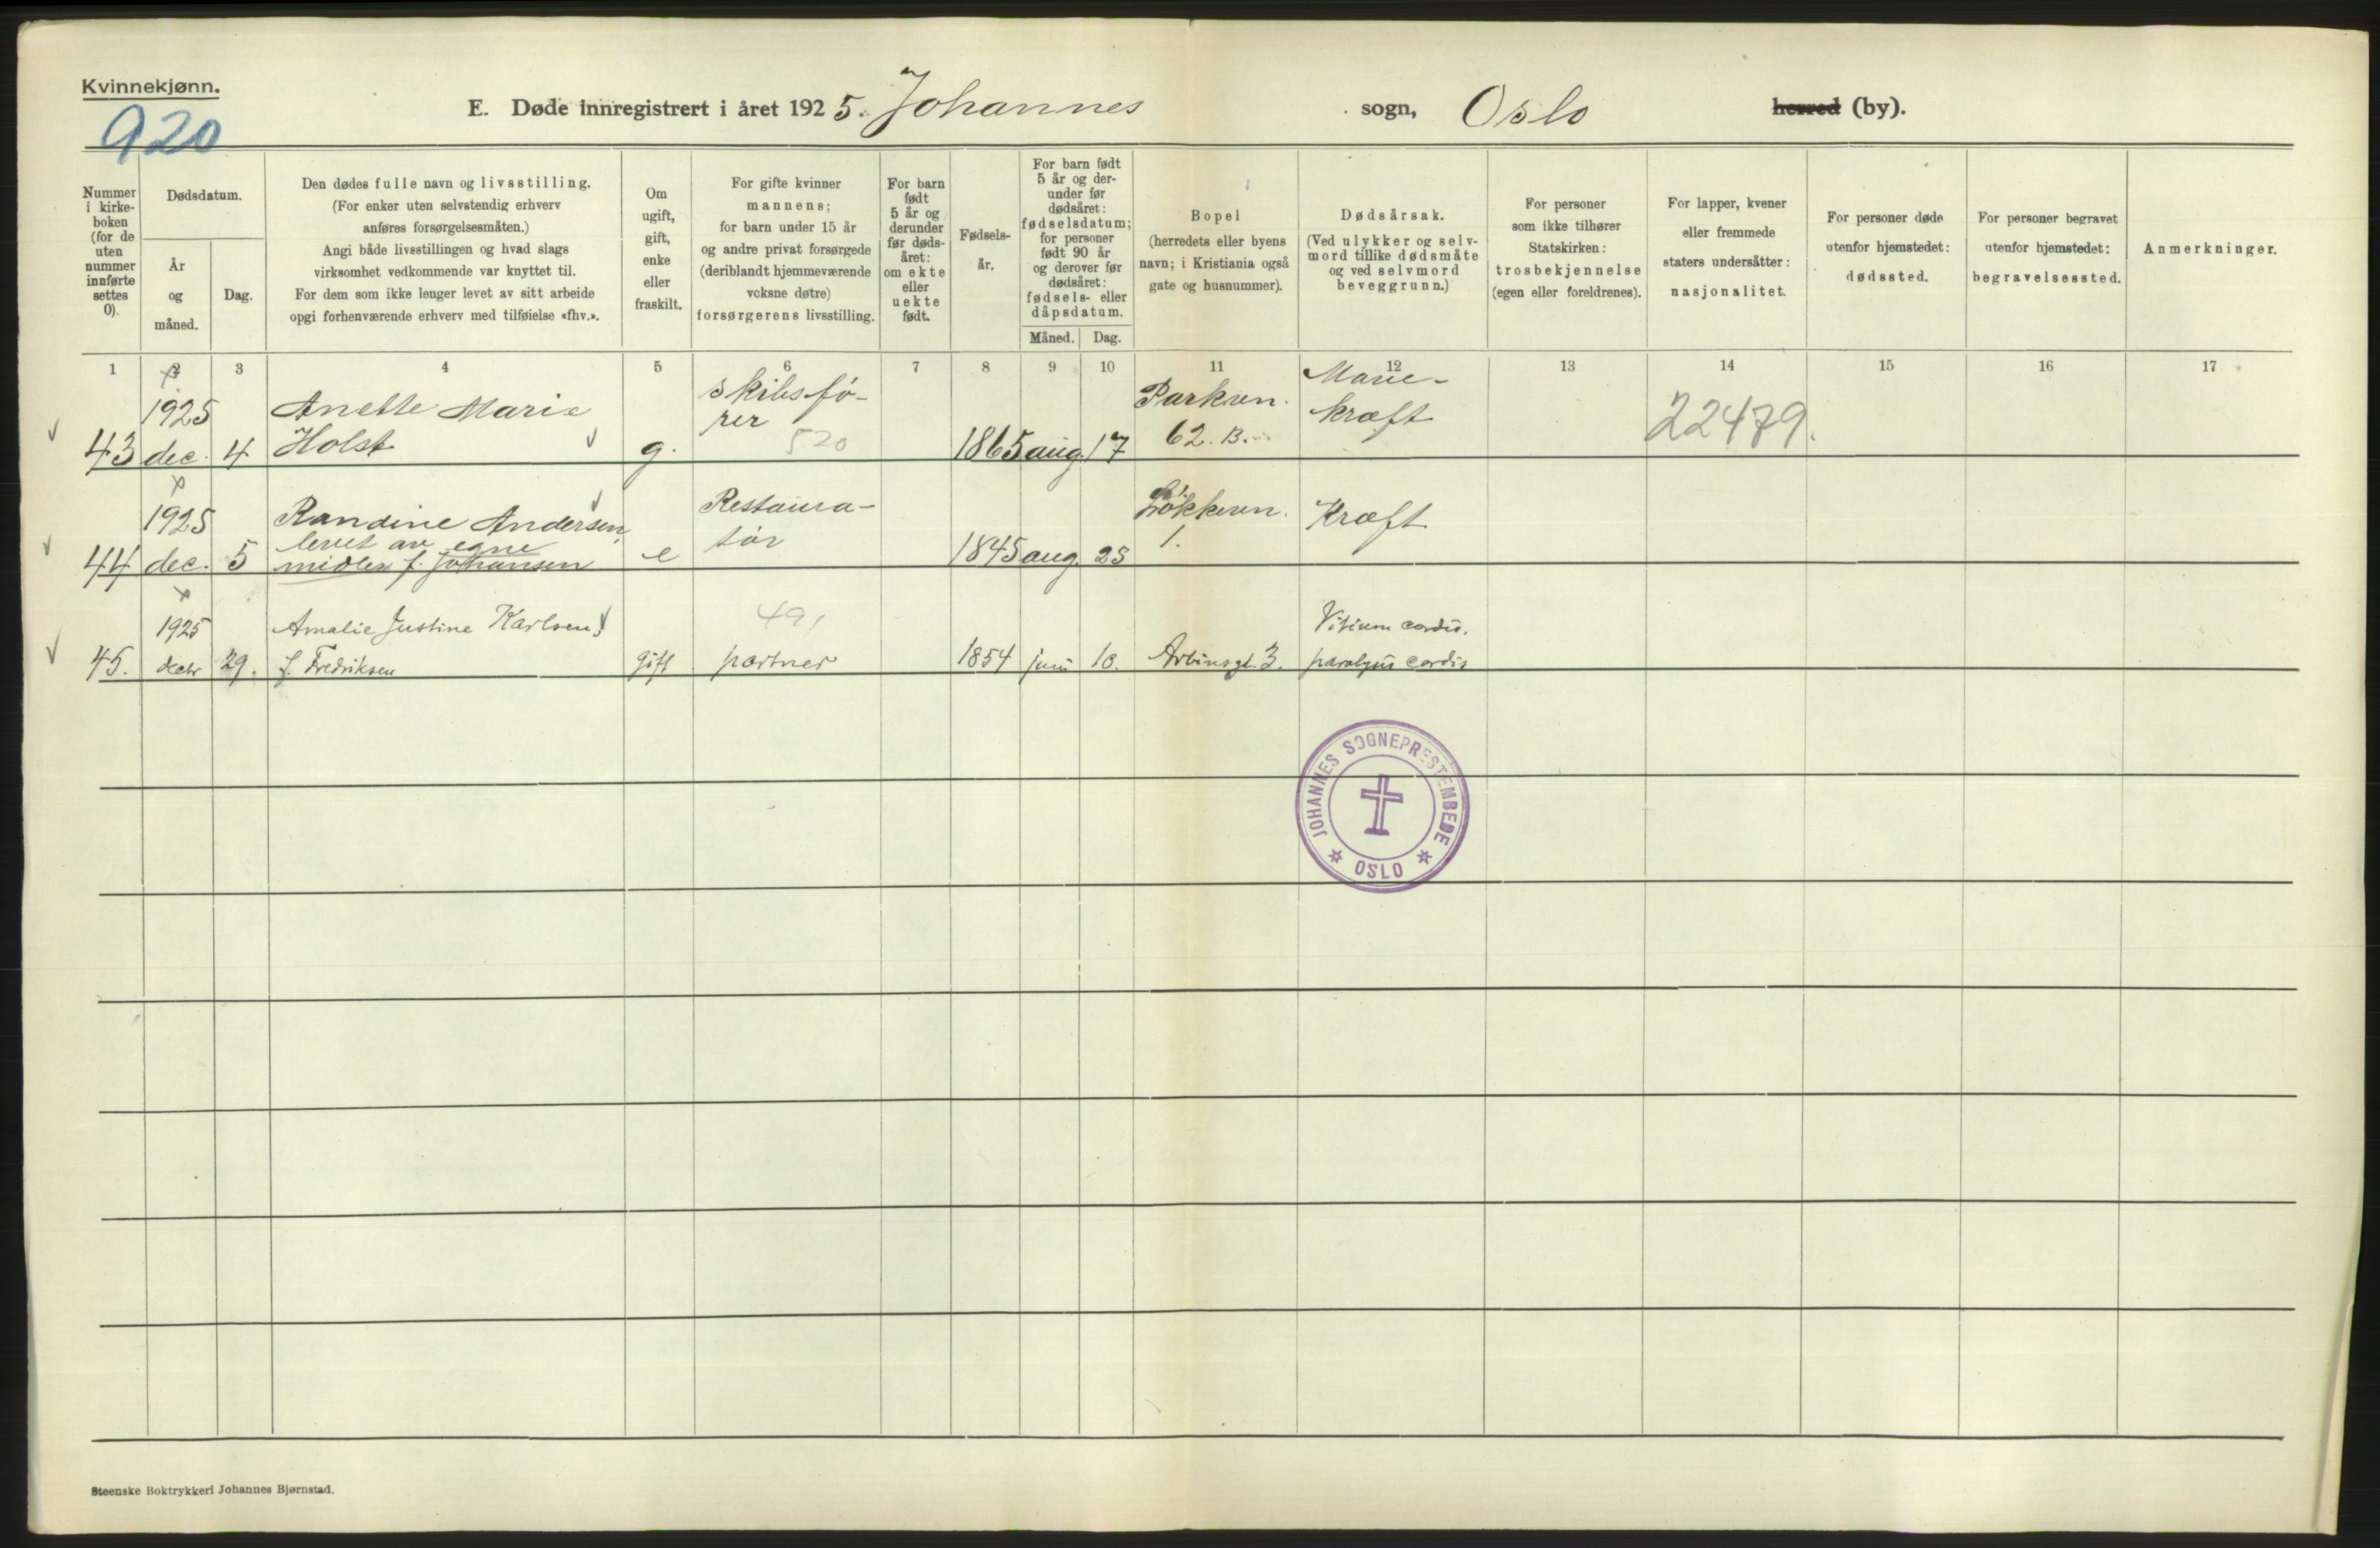 Kvinnekjønn.
920
E. Døde innregistrert i året 1925. Johannes sogn, Oslo herred (by).
Nummer i kirke- boken (for de uten nummer innførte settes 0).
Dødsdatum.
År og måned.
Dag.
Den dødes fulle navn og livsstilling.
(For enker uten selvstendig erhverv
anføres forsørgelsesmåten.)
Angi både livsstillingen og hvad slags
virksomhet vedkommende var knyttet til.
For dem som ikke lenger levet av sitt arbeide
opgi forhenværende erhverv med tilføielse «fhv.».
Om ugift, gift, enke eller fraskilt.
For gifte kvinner
mannens;
for barn under 15 år
og andre privat forsørgede
(deriblandt hjemmeværende
voksne døtre)
forsørgerens livsstilling.
For barn født 5 år og derunder før døds- året: om ekte eller uekte født.
Fødsels- år.
For barn født 5 år og der- under før dødsåret: fødselsdatum; for personer født 90 år og derover før dødsåret: fødsels- eller dåpsdatum.
Måned. Dag.
Bopel
(herredets eller byens
navn; i Kristiania også
gate og husnummer).
Dødsårsak.
(Ved ulykker og selv-
mord tillike dødsmåte
og ved selvmord
beveggrunn.)
For personer
som ikke tilhører
Statskirken:
trosbekjennelse
(egen eller foreldrenes).
For lapper, kvener
eller fremmede
staters undersåtter:
nasjonalitet.
For personer døde
utenfor hjemstedet:
dødssted.
For personer begravet
utenfor hjemstedet:
begravelsessted.
Anmerkninger.
1 2 3 4 5 6 7 8 9 10 11 12 13 14 15 16 17
43 1925 dec. 4 Anette Marie Holst g. Skibsfø- rer 520 1865 aug. 17 Parkvn. 62. B. Mave- kræft 22479.
44 1925 dec. 5 Randine Andersen, levet av egne midler f. Johansen e Restaura- tør 1845 aug. 25 Løkkevn. 1. Kræft
45. 1925 decbr 29. Amalie Justine Karlsen, f. Fredriksen gift partner 491 1854 juni 10. Arbinsgt. 3. Vitium cordis. paralysis cordis
JOHANNES SOGNEPRESTEMBEDE
OSLO
Steenske Boktrykkeri Johannes Bjørnstad.